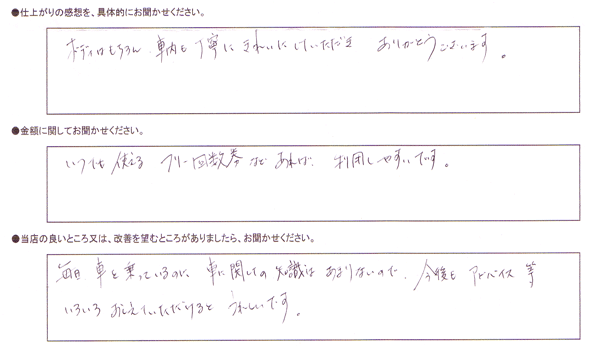 ●仕上がりの感想を、具体的にお聞かせください。
ボディはもちろん、車内も丁寧にきれいにしていただき ありがとうございます。
●金額に関してお聞かせください。
いつでも使える フリー回数券などあれば、利用しやすいです。
●当店の良いところ又は、改善を望むところがありましたら、お聞かせください。
毎日 車を乗っているのに、車に関しての知識はあまりないので、今後も アドバイス等
いろいろおしえていただけると うれしいです。